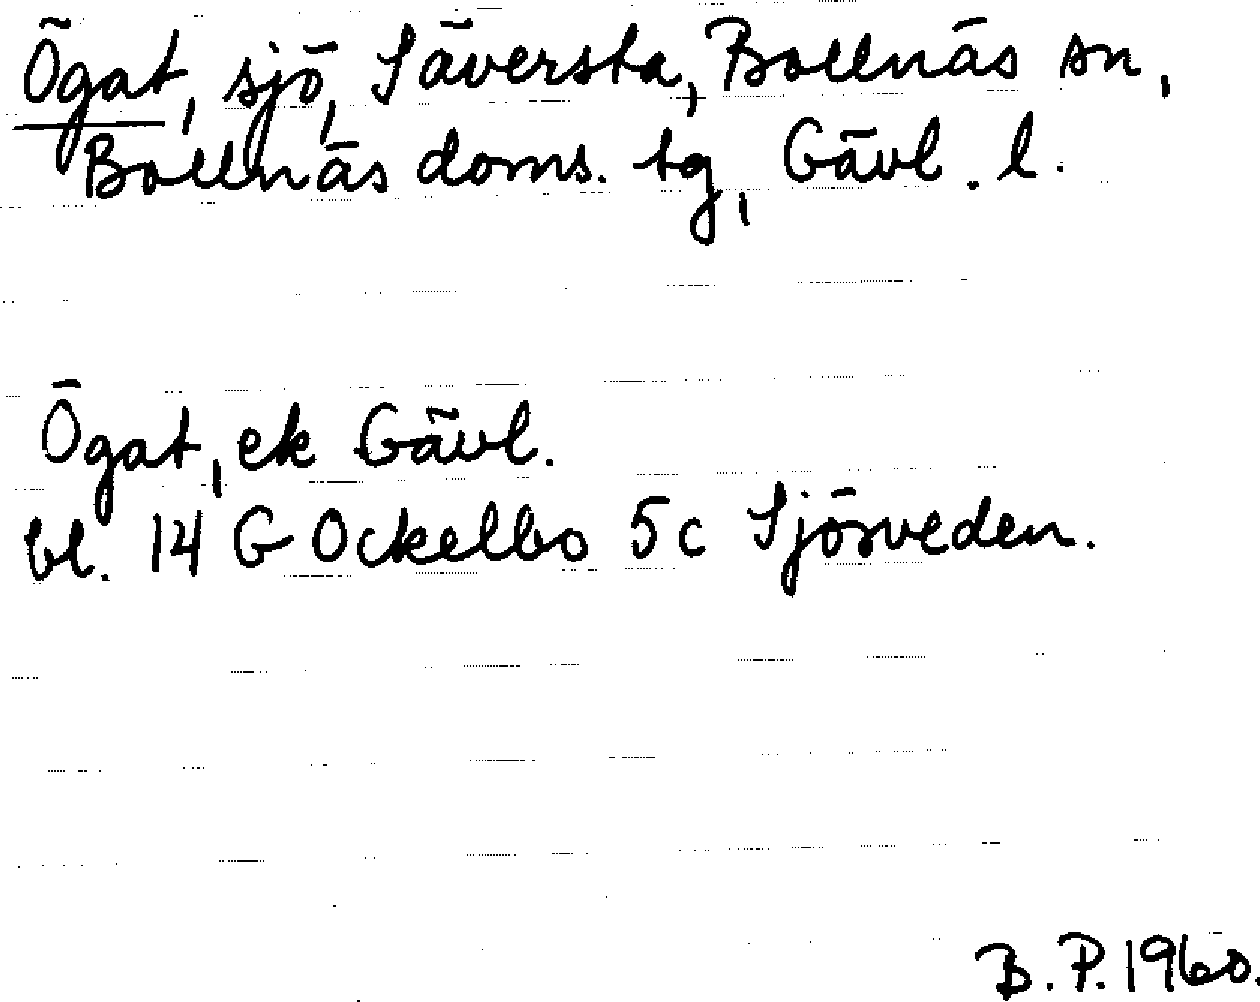 Ögat, sjö, Säversta, Bollnäs sn,
Bollnäs doms. tg, Gävl. l.
Ögat, ek Gävl.
bl. 14 G Ockelbo 5c Sjösveden.
B. P. 1960.